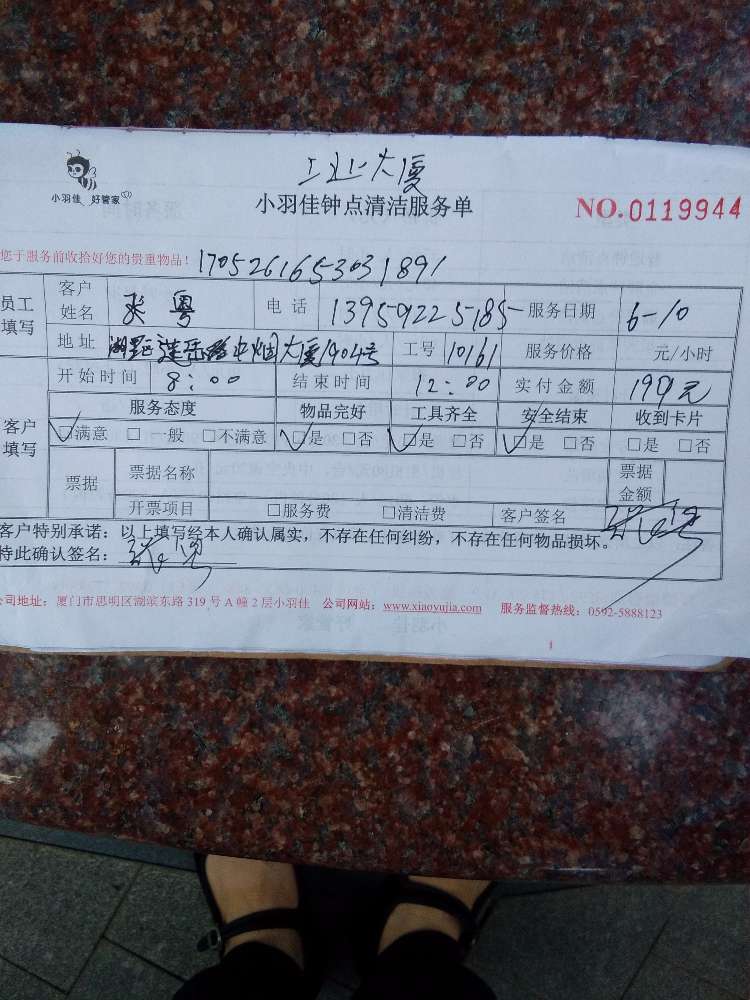 工业大厦
小羽佳 好管家
小羽佳钟点清洁服务单
NO.0119944
您于服务前收拾好您的贵重物品!
1705261653031891
员工填写 客户姓名 张粤 电话 13959225185 服务日期 6-10
地址 湖里区 中烟大厦1904号 工号 10161 服务价格 元/小时
客户填写 开始时间 8:00 结束时间 12:00 实付金额 元
服务态度 物品完好 工具齐全 安全结束 收到卡片
☑满意 □一般 □不满意 ☑是 □否 ☑是 □否 ☑是 □否 □是 □否
票据 票据名称 票据金额
开票项目 □服务费 □清洁费 客户签名
客户特别承诺:以上填写经本人确认属实,不存在任何纠纷,不存在任何物品损坏。
特此确认签名:
公司地址:厦门市思明区湖滨东路 319 号 A 幢 2 层小羽佳 公司网站:www.xiaoyujia.com 服务监督热线:0592-5888123